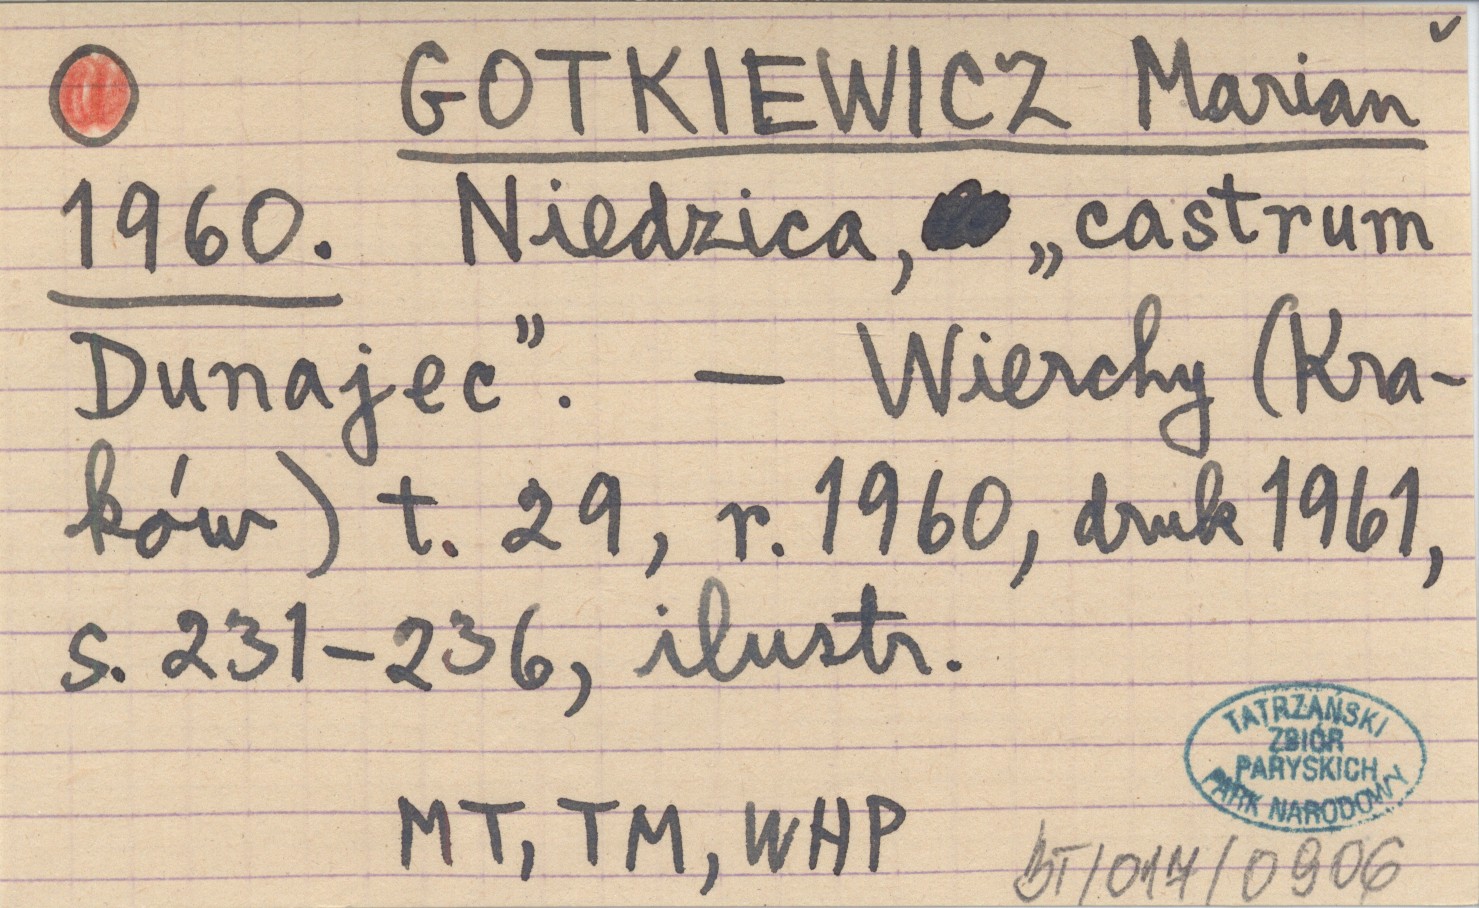 GOTKIEWICZ Marian
1960. Niedzica, „castrum
Dunajec”. — Wierchy (Kra-
ków) t. 29, r. 1960, druk 1961,
s. 231-236, ilustr.
TATRZAŃSKI
ZBIÓR
PARYSKICH
PARK NARODOWY
MT, TM, WHP
BT/017/0906